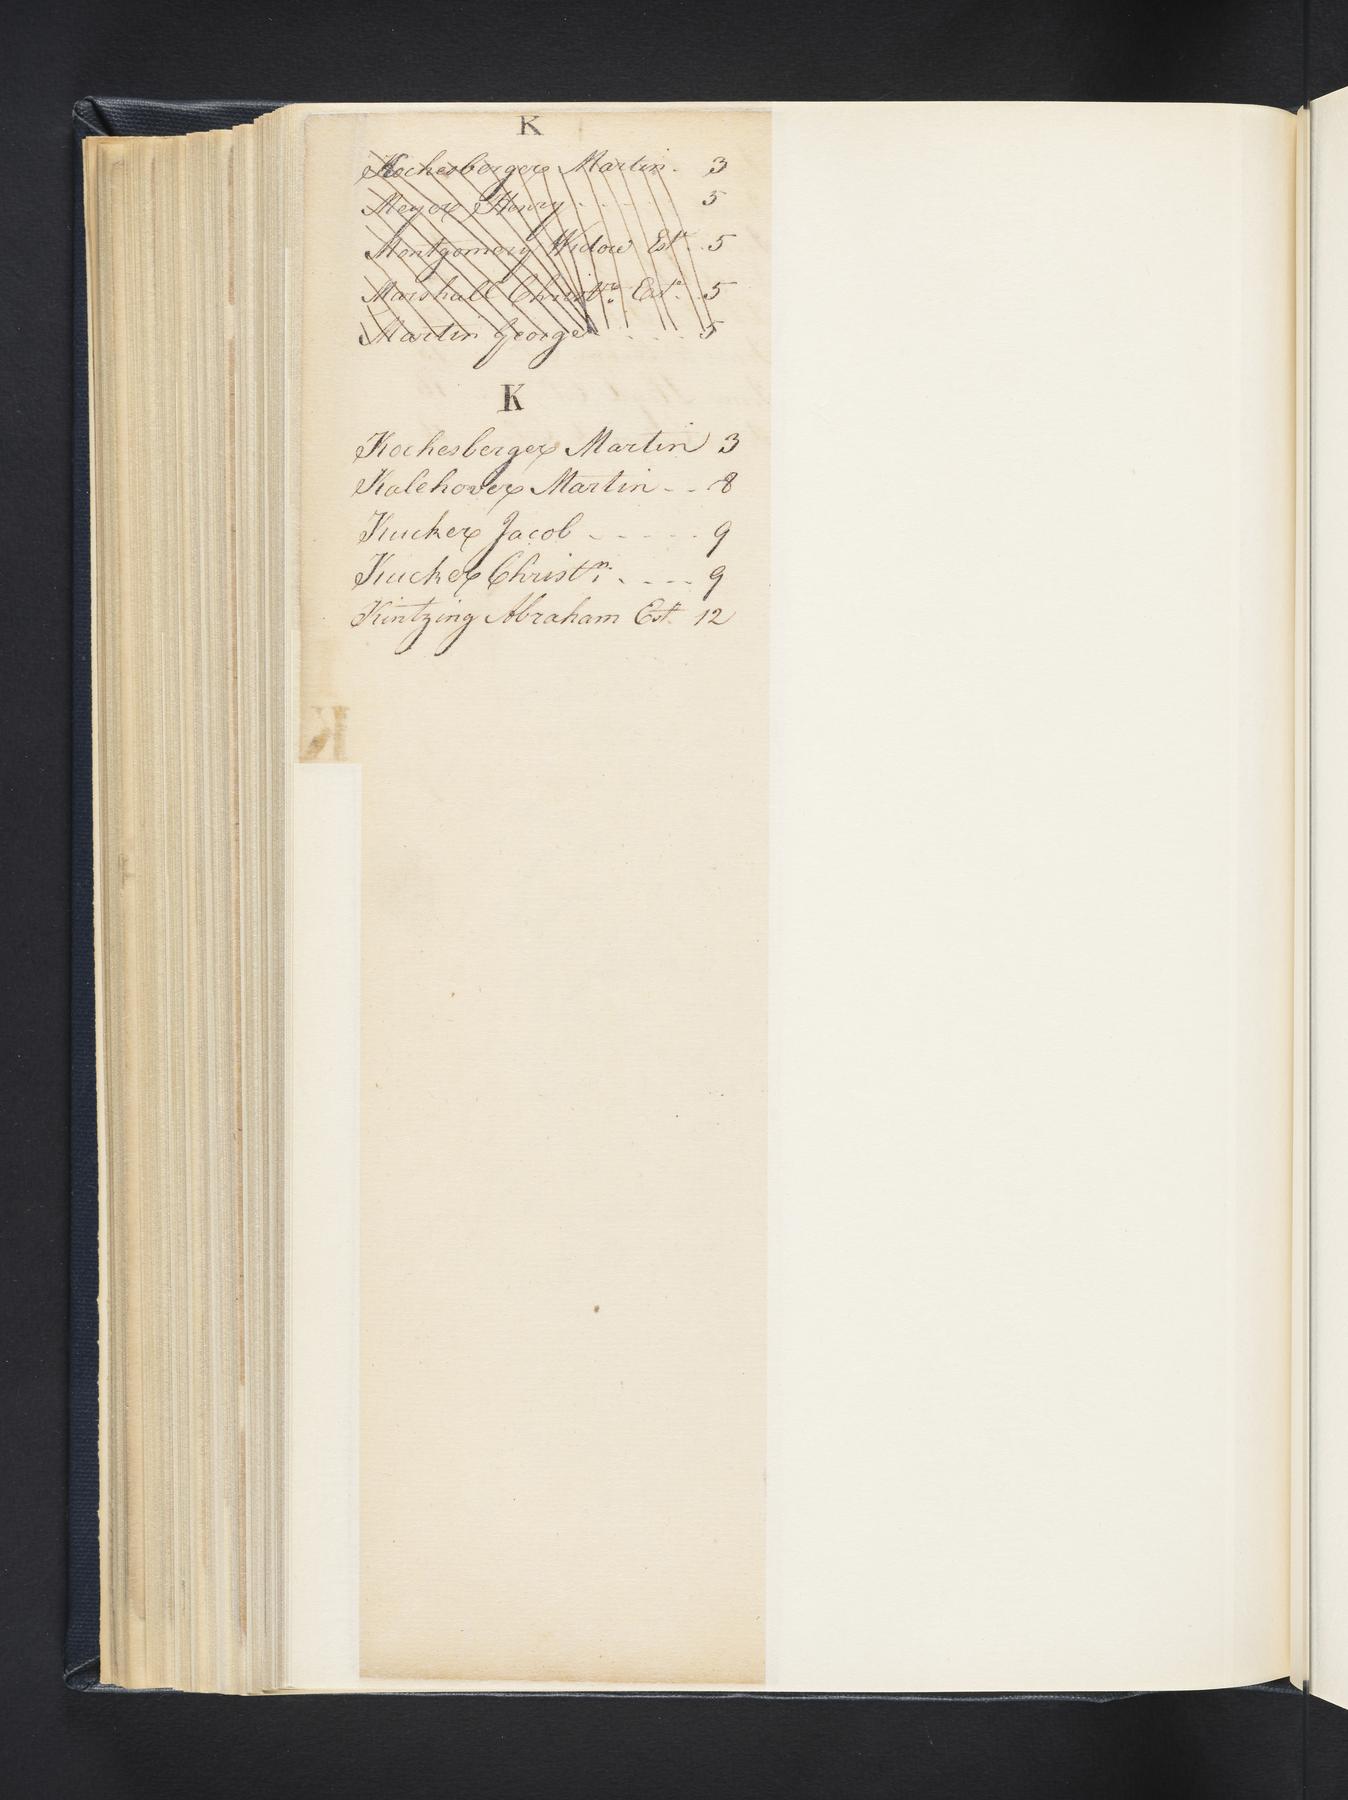 K
Kochesberger Martin. 3
Meyer Henry . . . . 5
Montgomery Widow Est. . 5
Marshall Christr. Est. . 5
Martin George . . . . 5
K
Kochesberger Martin 3
Kalehover Martin - - 8
Kucker Jacob - - - - - 9
Kucker Christn. - - - - 9
Kintzing Abraham Est. 12
K